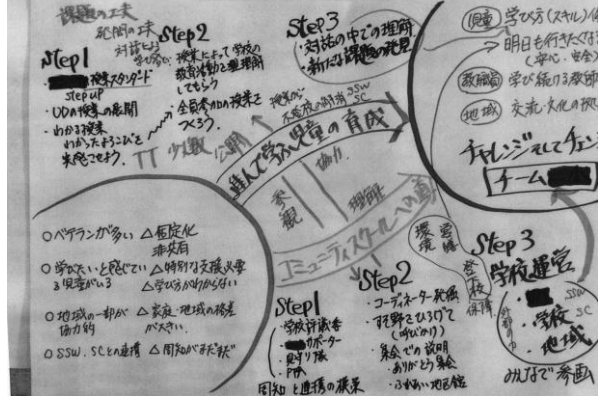 課題の工夫
発問の工夫
対話による
学び合い
Step1
授業スタンダード
step up
・UDの授業の展開
・わかる授業
わかるよろこびを
実感させよう。
TT 少人数
Step2
授業によって学校の
教育活動を理解
してもらう
・全員参加の授業を
つくろう。
公開
Step3
・対話の中での理解
・新たな課題の発見
SSW
SC
進んで学ぶ児童の育成
参観
協力
理解
コミュニティスクールへの道
児童 学び方(スキル)
明日も行きたくな
(安心・安全)
教職員 学び続ける教師
地域 交流・文化の拠
チャレンジそしてチェン
チーム
○ベテランが多い △固定化
非共有
○学びたいと感じてい △特別な支援必要
る児童がいる △学び方がわからない
○地域の一部が △家庭・地域の格差
協力的 が大きい
○SSW.SCとの連携 △周知がまだまだ
Step1
・学校評議委
サポーター
・見守り隊
・PTA
周知と連携の模索
Step2
・コーディネーター発掘
・すそ野をひろげて
(呼びかけ)
・集会での説明
・ありがとう集会
・ふれあい地区館
環境
Step3
学校運営
・学校
・地域
SSW
SC
みんなで参画